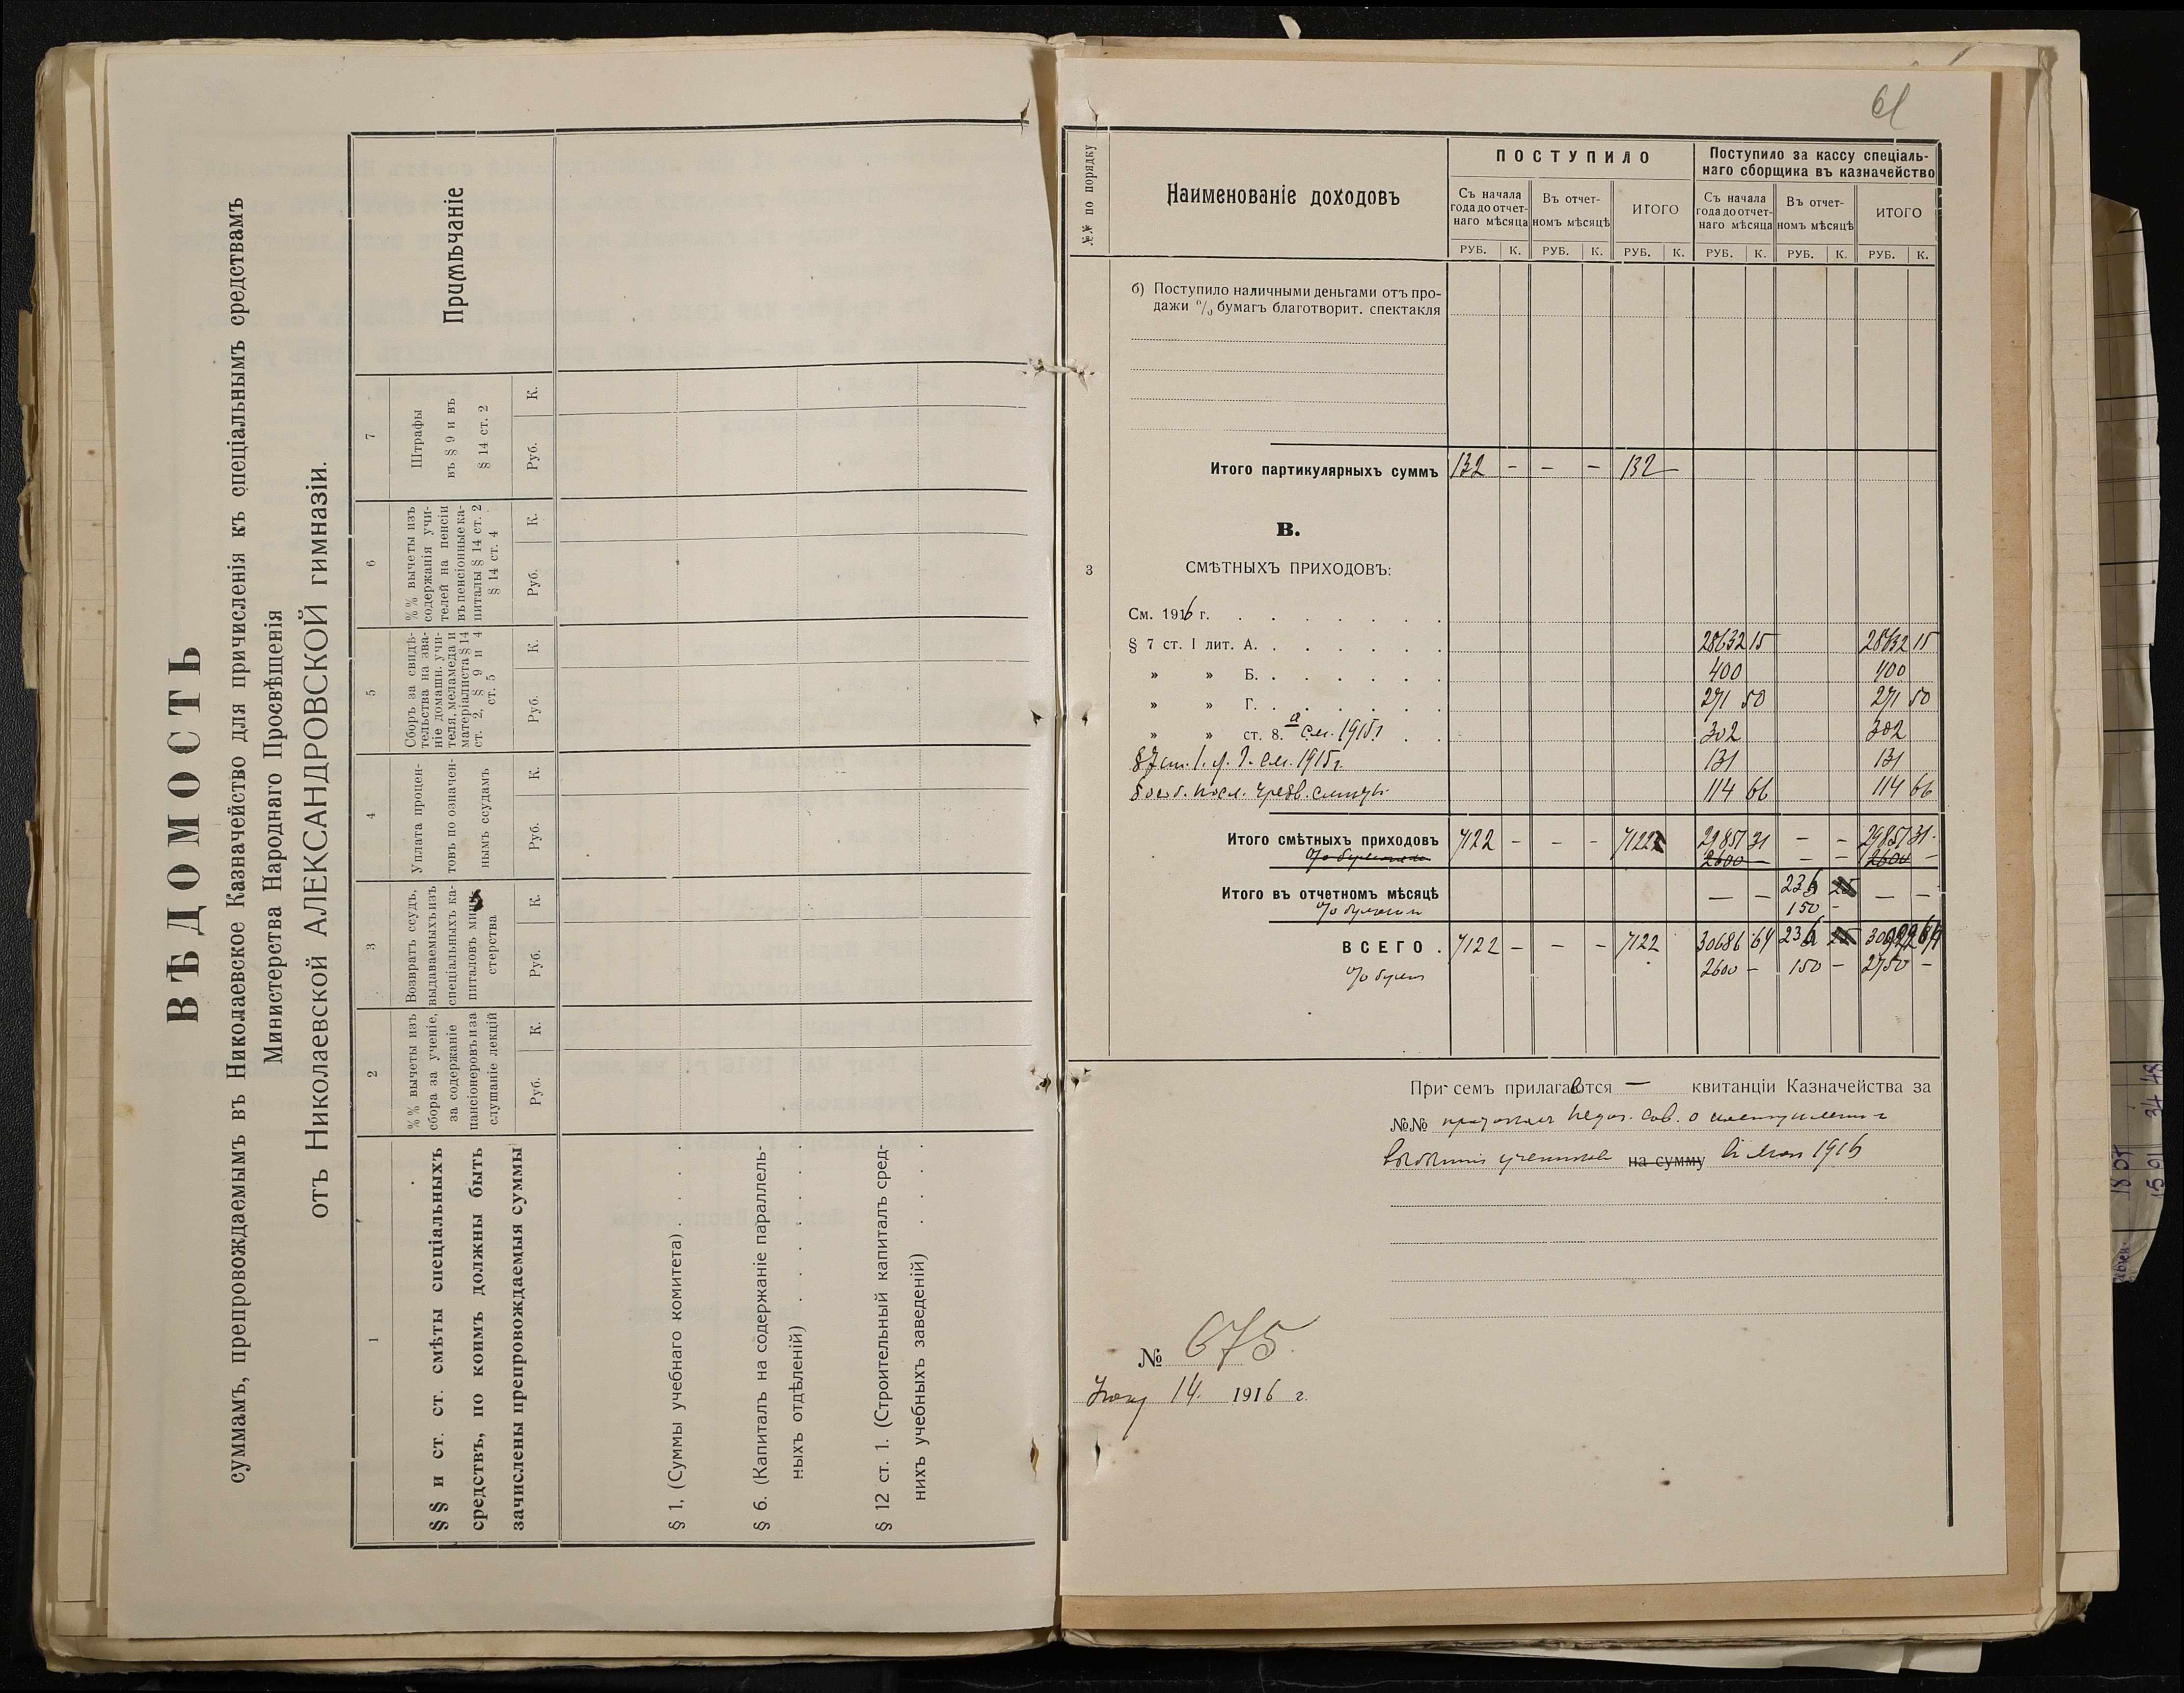 ВѢДОМОСТЬ
суммамъ, препровождаемымъ въ Николаевское Казначейство для причисленія къ спеціальнымъ средствамъ
Министерства Народнаго Просвѣщенія
отъ Николаевской АЛЕКСАНДРОВСКОЙ гимназіи.
1
§§ и ст. ст. смѣты спеціальныхъ
средствъ, по коимъ должны быть
зачислены препровождаемыя суммы
2
%% вычеты изъ
сбора за ученіе,
за содержаніе
пансіонеровъ и за
слушаніе лекцій
Руб. К.
3
Возвратъ ссудъ,
выдаваемыхъ изъ
спеціальныхъ ка-
питаловъ мини-
стерства
Руб. К.
4
Уплата процен-
товъ по означен-
нымъ ссудамъ
Руб. К.
5
Сборъ за свидѣ-
тельства на зва-
ніе домашн. учи-
теля, меламеда и
матеріалиста § 14
ст. 2, § 9 и 4
ст. 5
Руб. К.
6
%% вычеты изъ
содержанія учи-
телей на пенсіи
въ пенсіонные ка-
питалы § 14 ст. 2
§ 14 ст. 4
Руб. К.
7
Штрафы
въ § 9 и въ
§ 14 ст. 2
Руб. К.
Примѣчаніе
§ 1, (Суммы учебнаго комитета) . . . .
§ 6. (Капиталъ на содержаніе параллель-
ныхъ отдѣленій) . . . . . . .
§ 12 ст. 1. (Строительный капиталъ сред-
нихъ учебныхъ заведеній) . . . .
61
№№ по порядку
Наименованіе доходовъ
ПОСТУПИЛО
Поступило за кассу спеціаль-
наго сборщика въ казначейство
Съ начала
года до отчет-
наго мѣсяца
Въ отчет-
номъ мѣсяцѣ
ИТОГО
Съ начала
года до отчет-
наго мѣсяца
Въ отчет-
номъ мѣсяцѣ
ИТОГО
РУБ. К. РУБ. К. РУБ. К. РУБ. К. РУБ. К. РУБ. К.
б) Поступило наличными деньгами отъ про-
дажи % бумагъ благотворит. спектакля
Итого партикулярныхъ суммъ 132 - - - 132 -
В.
3 СМѢТНЫХЪ ПРИХОДОВЪ:
См. 1916 г. . . . . . . .
§ 7 ст. I лит. А. . . . . . . 28632 15 28632 15
» » Б. . . . . . . 400 400
» » Г. . . . . . . 271 50 271 50
» » ст. 8. а см. 1915 г . . 302 302
§ 7 ст. 1. см. 1915 г 131 131
114 66 114 66
Итого смѣтныхъ приходовъ 7122 - - - 7122 29851 31 - - 29851 31
2600 - - - 2600 -
Итого въ отчетномъ мѣсяцѣ - - 236 25 - -
% бумагами 150 -
ВСЕГО . 7122 - - - 7122 30686 64 236
% бумаг 2600 - 150 - 2750 -
При семъ прилагаются — квитанціи Казначейства за
№№
на сумму 1916
№ 675.
14. 1916 г.